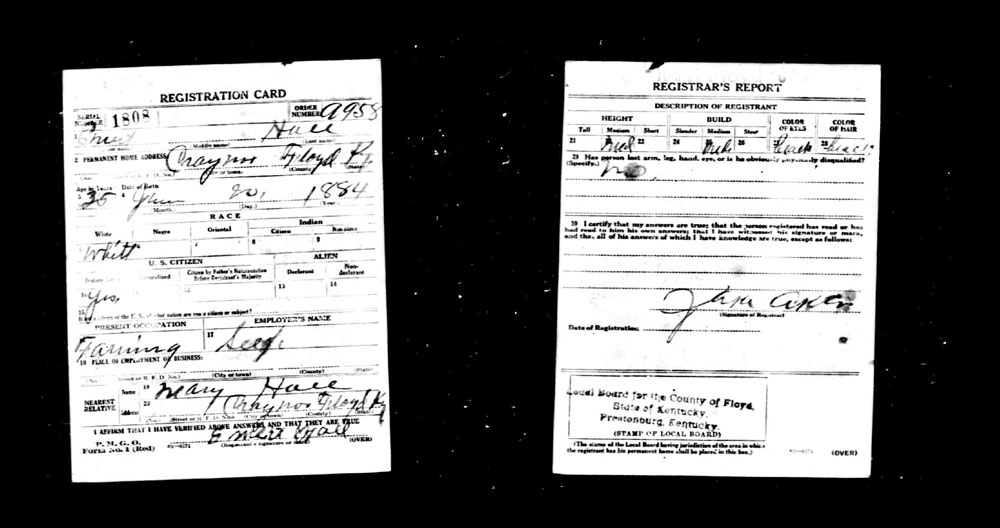 REGISTRATION CARD
SERIAL NUMBER 1808 ORDER NUMBER A958
Hall
(Middle name) (Last name)
2 PERMANENT HOME ADDRESS: Craynor Floyd Ky.
(No.) (County)
Age in Years Date of Birth
35 Jan 20, 1884
(Month.) (Day.) (Year.)
RACE
White Negro Oriental Indian
Citizen Noncitizen
8 9
White
U. S. CITIZEN ALIEN
Native Naturalized Citizen by Father's Naturalization Before Registrant's Majority Declarant Non-declarant
12 13 14
Yes,
15 If not a citizen of the U. S., of what nation are you a citizen or subject?
PRESENT OCCUPATION EMPLOYER'S NAME
17
Farming Self
18 PLACE OF EMPLOYMENT OR BUSINESS:
(No.) (Street or R. F. D. No.) (City or town) (County) (State)
NEAREST RELATIVE
Name 19 Mary Hall
Address 20 Craynor Floyd Ky
(No.) (Street or R. F. D. No.) (City or town) (County) (State)
I AFFIRM THAT I HAVE VERIFIED ABOVE ANSWERS AND THAT THEY ARE TRUE
P. M. G. O.
Form No. 1 (Red) (Registrant's signature or mark) (OVER)
Hall
REGISTRAR'S REPORT
DESCRIPTION OF REGISTRANT
HEIGHT BUILD COLOR OF EYES COLOR OF HAIR
Tall Medium Short Slender Medium Stout
21 22 23 24 25 26 27 28
Med Med Black Black
29 Has person lost arm, leg, hand, eye, or is he obviously physically disqualified?
(Specify.) no.
30 I certify that my answers are true; that the person registered has read or has
had read to him his own answers; that I have witnessed his signature or mark,
and that all of his answers of which I have knowledge are true, except as follows:
(Signature of Registrar)
Date of Registration
Local Board for the County of Floyd,
State of Kentucky,
Prestonburg, Kentucky.
(STAMP OF LOCAL BOARD)
(The stamp of the Local Board having jurisdiction of the area in which
the registrant has his permanent home shall be placed in this box.)
(OVER)